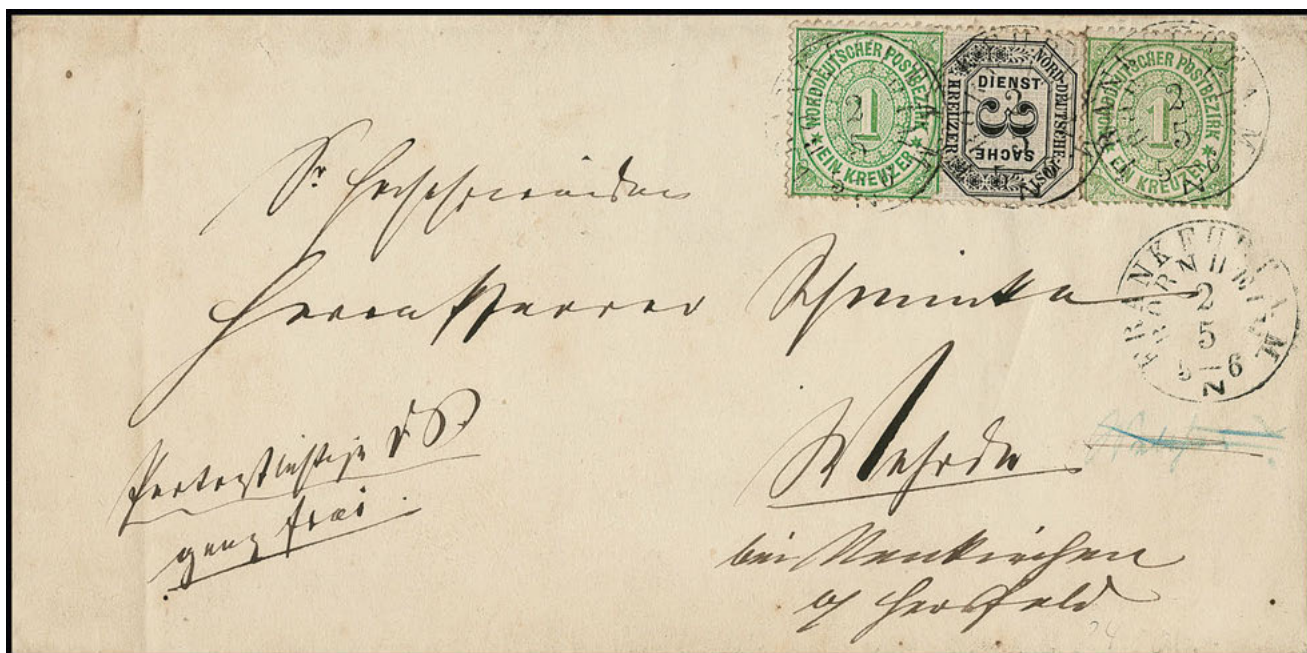 NORDDEUTSCHER POSTBEZIRK
1
EIN KREUZER
NORD-DEUTSCHE-POST
DIENST
3
SACHE
KREUZER
NORDDEUTSCHER POSTBEZIRK
1
EIN KREUZER
FRANKFURT A. M.
BORNHEIM
2
5
5-6
N
Sr Hochehrwürden
Herrn Pfarrer Schminke
Wehrda
bei Neukirchen
a/ Hersfeld
Portopflichtige D.S.
ganz frei